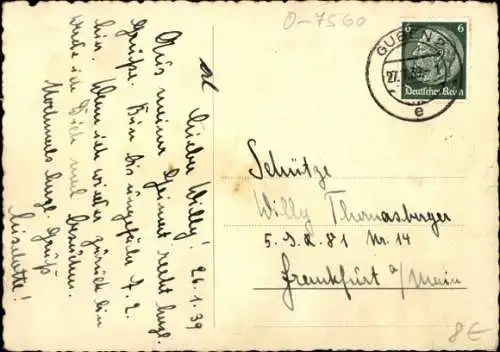 O-7560
GUBEN 2
27.1.39
e
6 6
Deutsches Reich
26.1.39
Lieber Willy!
Aus meiner Heimat recht herzl.
Grüße. Bin bis ungefähr 7.2.
hier. Wenn ich wieder zurück bin
werde ich Dich mal besuchen.
Nochmals herzl. Gruß
Liselotte!
Schütze
Willy Thomasberger
5. J.R. 81 Nr. 14
Frankfurt a/Main
8E